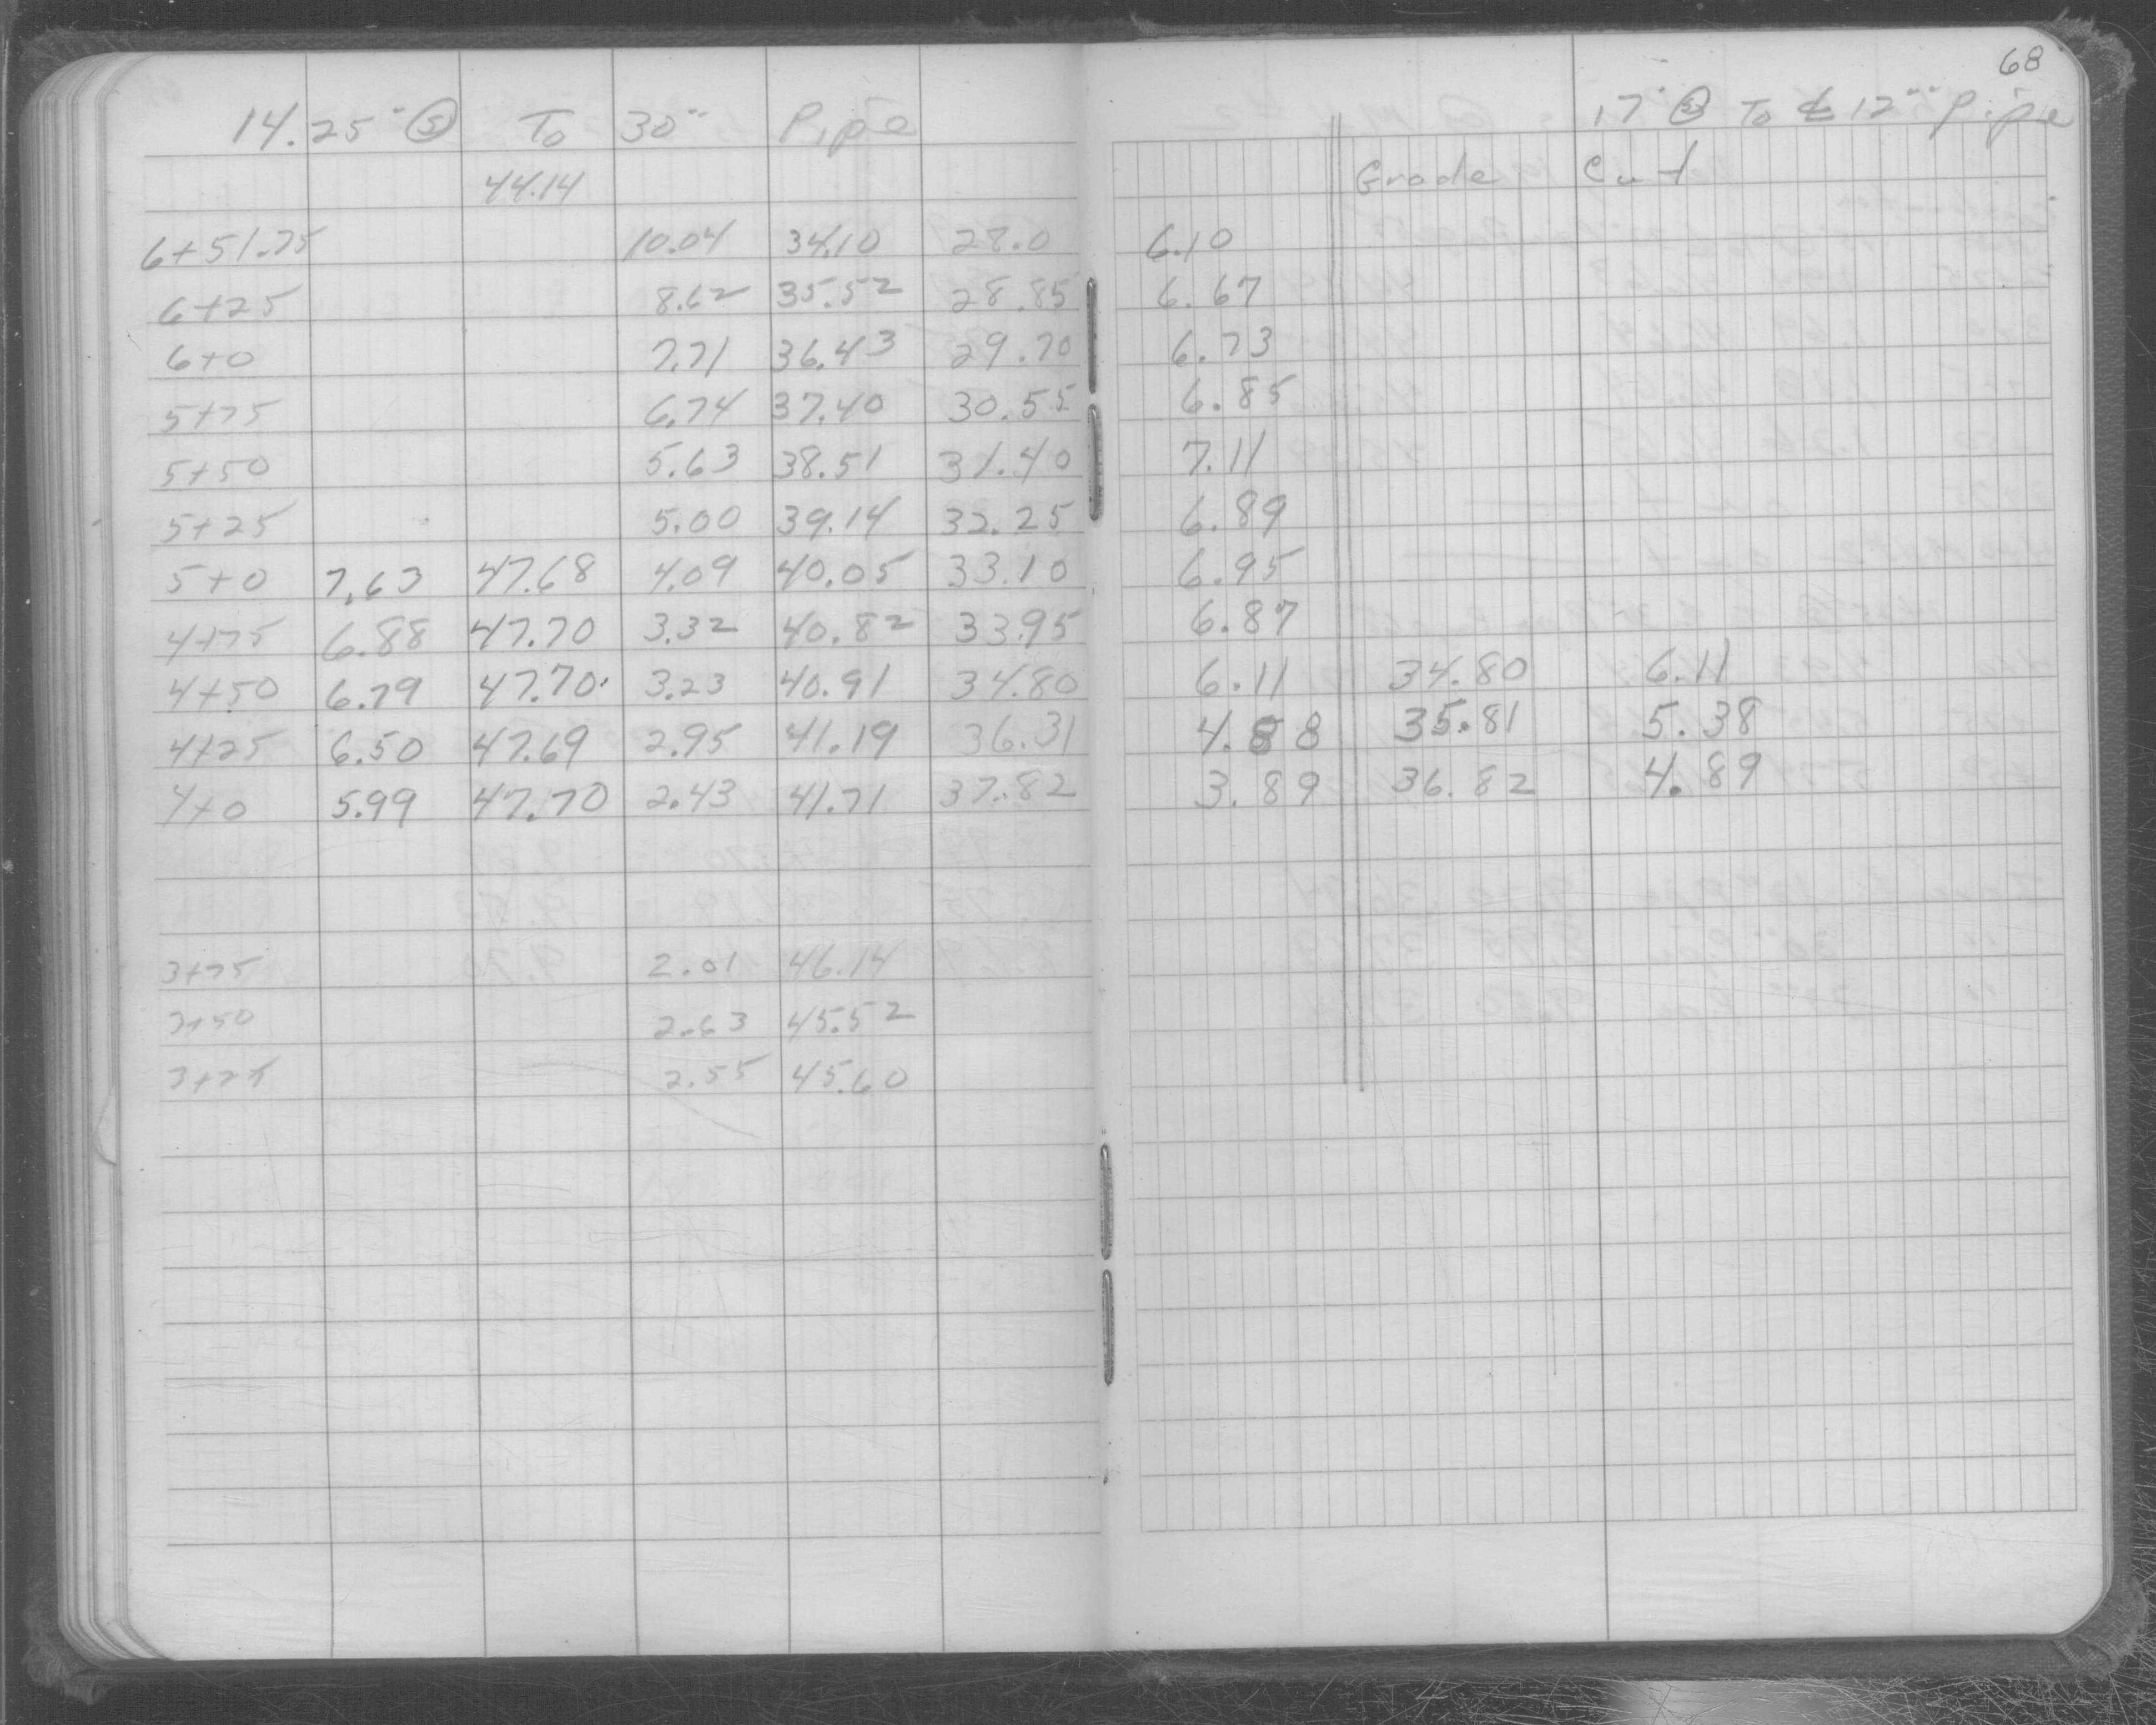 68
14.25' Ⓢ To 30" Pipe 17' Ⓢ To ℄ 12" Pipe
44.14 Grade Cut
6+51.75 10.04 34.10 28.0 6.10
6+25 8.62 35.52 28.85 6.67
6+0 7.71 36.43 29.70 6.73
5+75 6.74 37.40 30.55 6.85
5+50 5.63 38.51 31.40 7.11
5+25 5.00 39.14 32.25 6.89
5+0 7.63 47.68 4.09 40.05 33.10 6.95
4+75 6.88 47.70 3.32 40.82 33.95 6.87
4+50 6.79 47.70 3.23 40.91 34.80 6.11 34.80 6.11
4+25 6.50 47.69 2.95 41.19 36.31 4.88 35.81 5.38
4+0 5.99 47.70 2.43 41.71 37.82 3.89 36.82 4.89
3+75 2.01 46.14
3+50 2.63 45.52
3+25 2.55 45.60